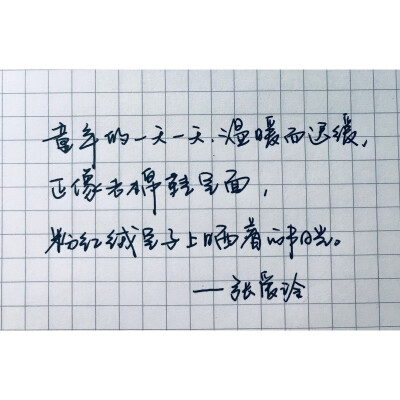 童年的一天一天,温暖而迟缓,
正像老棉鞋里面,
粉红绒里子上晒着的阳光。
——张爱玲